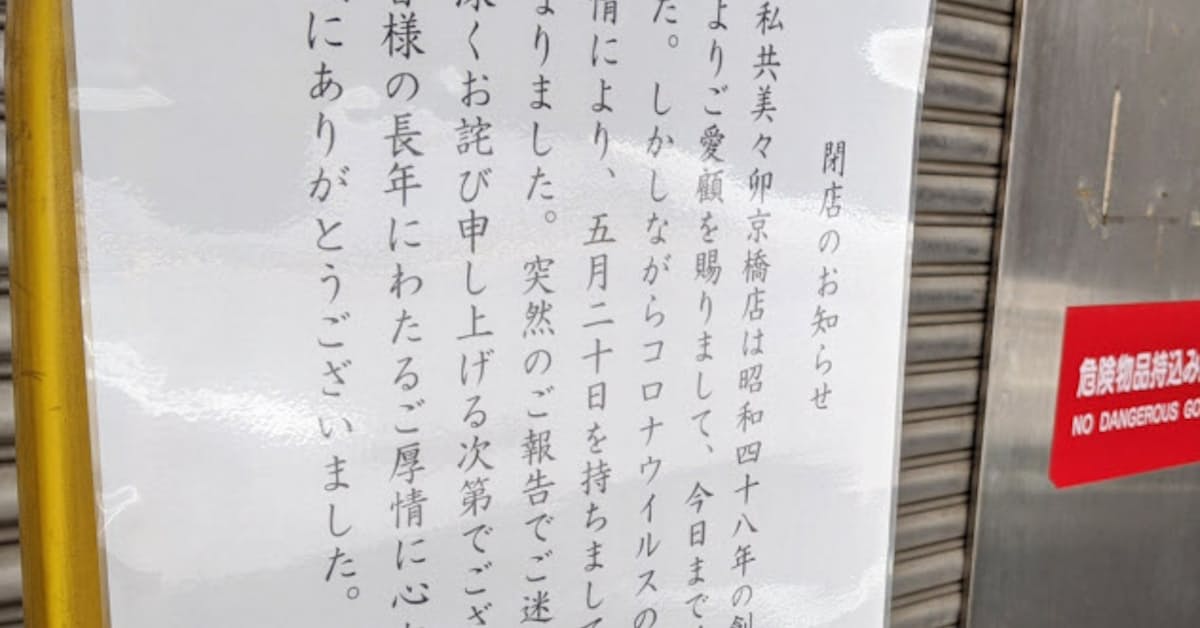 閉店のお知らせ
私共美々卯京橋店は昭和四十八年の創
よりご愛顧を賜りまして、今日まで
た。しかしながらコロナウイルスの
情により、五月二十日を持ちまして
まりました。突然のご報告でご迷
深くお詫び申し上げる次第でござ
皆様の長年にわたるご厚情に心
にありがとうございました。
危険物品持込み
NO DANGEROUS GO